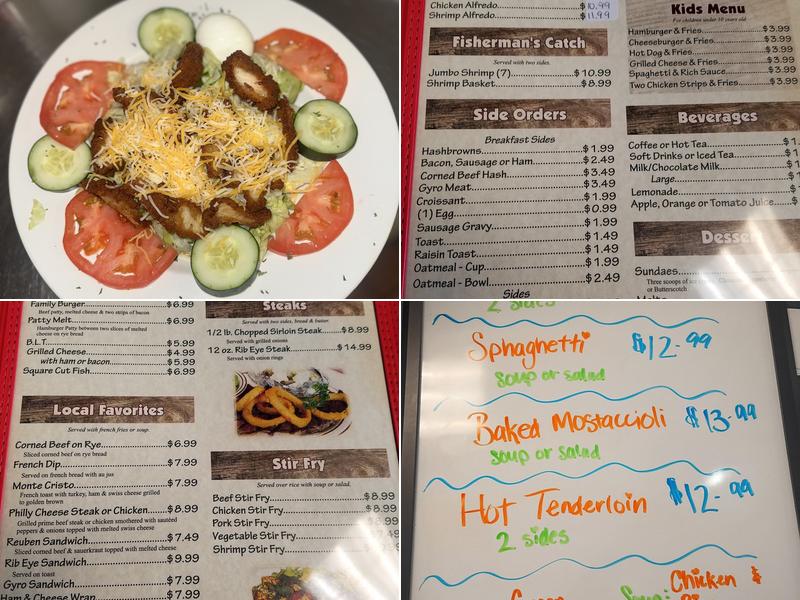 Chicken Alfredo $10.99
Shrimp Alfredo $11.99
Fisherman's Catch
Served with two sides.
Jumbo Shrimp (7) $10.99
Shrimp Basket $8.99
Side Orders
Breakfast Sides
Hashbrowns $1.99
Bacon, Sausage or Ham $2.49
Corned Beef Hash $3.49
Gyro Meat $3.49
Croissant $1.99
(1) Egg $0.99
Sausage Gravy $1.99
Toast $1.49
Raisin Toast $1.49
Oatmeal - Cup $1.99
Oatmeal - Bowl $2.49
Sides
Kids Menu
For children under 10 years old
Hamburger & Fries $3.99
Cheeseburger & Fries $3.99
Hot Dog & Fries $3.99
Grilled Cheese & Fries $3.99
Spaghetti & Rich Sauce $3.99
Two Chicken Strips & Fries $3.99
Beverages
Coffee or Hot Tea $1.
Soft Drinks or Iced Tea $1.
Milk/Chocolate Milk $1.
Large
Lemonade
Apple, Orange or Tomato Juice
Sundaes
Three scoops of ice
or Butterscotch
Family Burger $6.99
Beef patty, melted cheese & two strips of bacon
Patty Melt $6.99
Hamburger Patty between two slices of melted
cheese on rye bread
B.L.T. $5.99
Grilled Cheese $4.99
with ham or bacon $5.99
Square Cut Fish $6.99
Local Favorites
Served with french fries or soup.
Corned Beef on Rye $6.99
Sliced corned beef on rye bread
French Dip $7.99
Served on french bread with au jus
Monte Cristo $7.99
French toast with turkey, ham & swiss cheese grilled
to golden brown
Philly Cheese Steak or Chicken $8.99
Grilled prime beef steak or chicken smothered with sautéed
peppers & onions topped with melted swiss cheese
Reuben Sandwich $7.49
Sliced corned beef & sauerkraut topped with melted cheese
Rib Eye Sandwich $9.99
Served on toast
Gyro Sandwich $7.99
Ham & Cheese Wrap $7.99
Steaks
Served with two sides, bread & butter.
1/2 lb. Chopped Sirloin Steak $8.99
Served with grilled onions
12 oz. Rib Eye Steak $14.99
Served with onion rings
Stir Fry
Served over rice with soup or salad.
Beef Stir Fry $8.99
Chicken Stir Fry $8.99
Pork Stir Fry $8.99
Vegetable Stir Fry
Shrimp Stir Fry
2 sides
Sphaghetti $12.99
soup or salad
Baked Mostaccioli $13.99
soup or salad
Hot Tenderloin $12.99
2 sides
Chicken $
Soup: